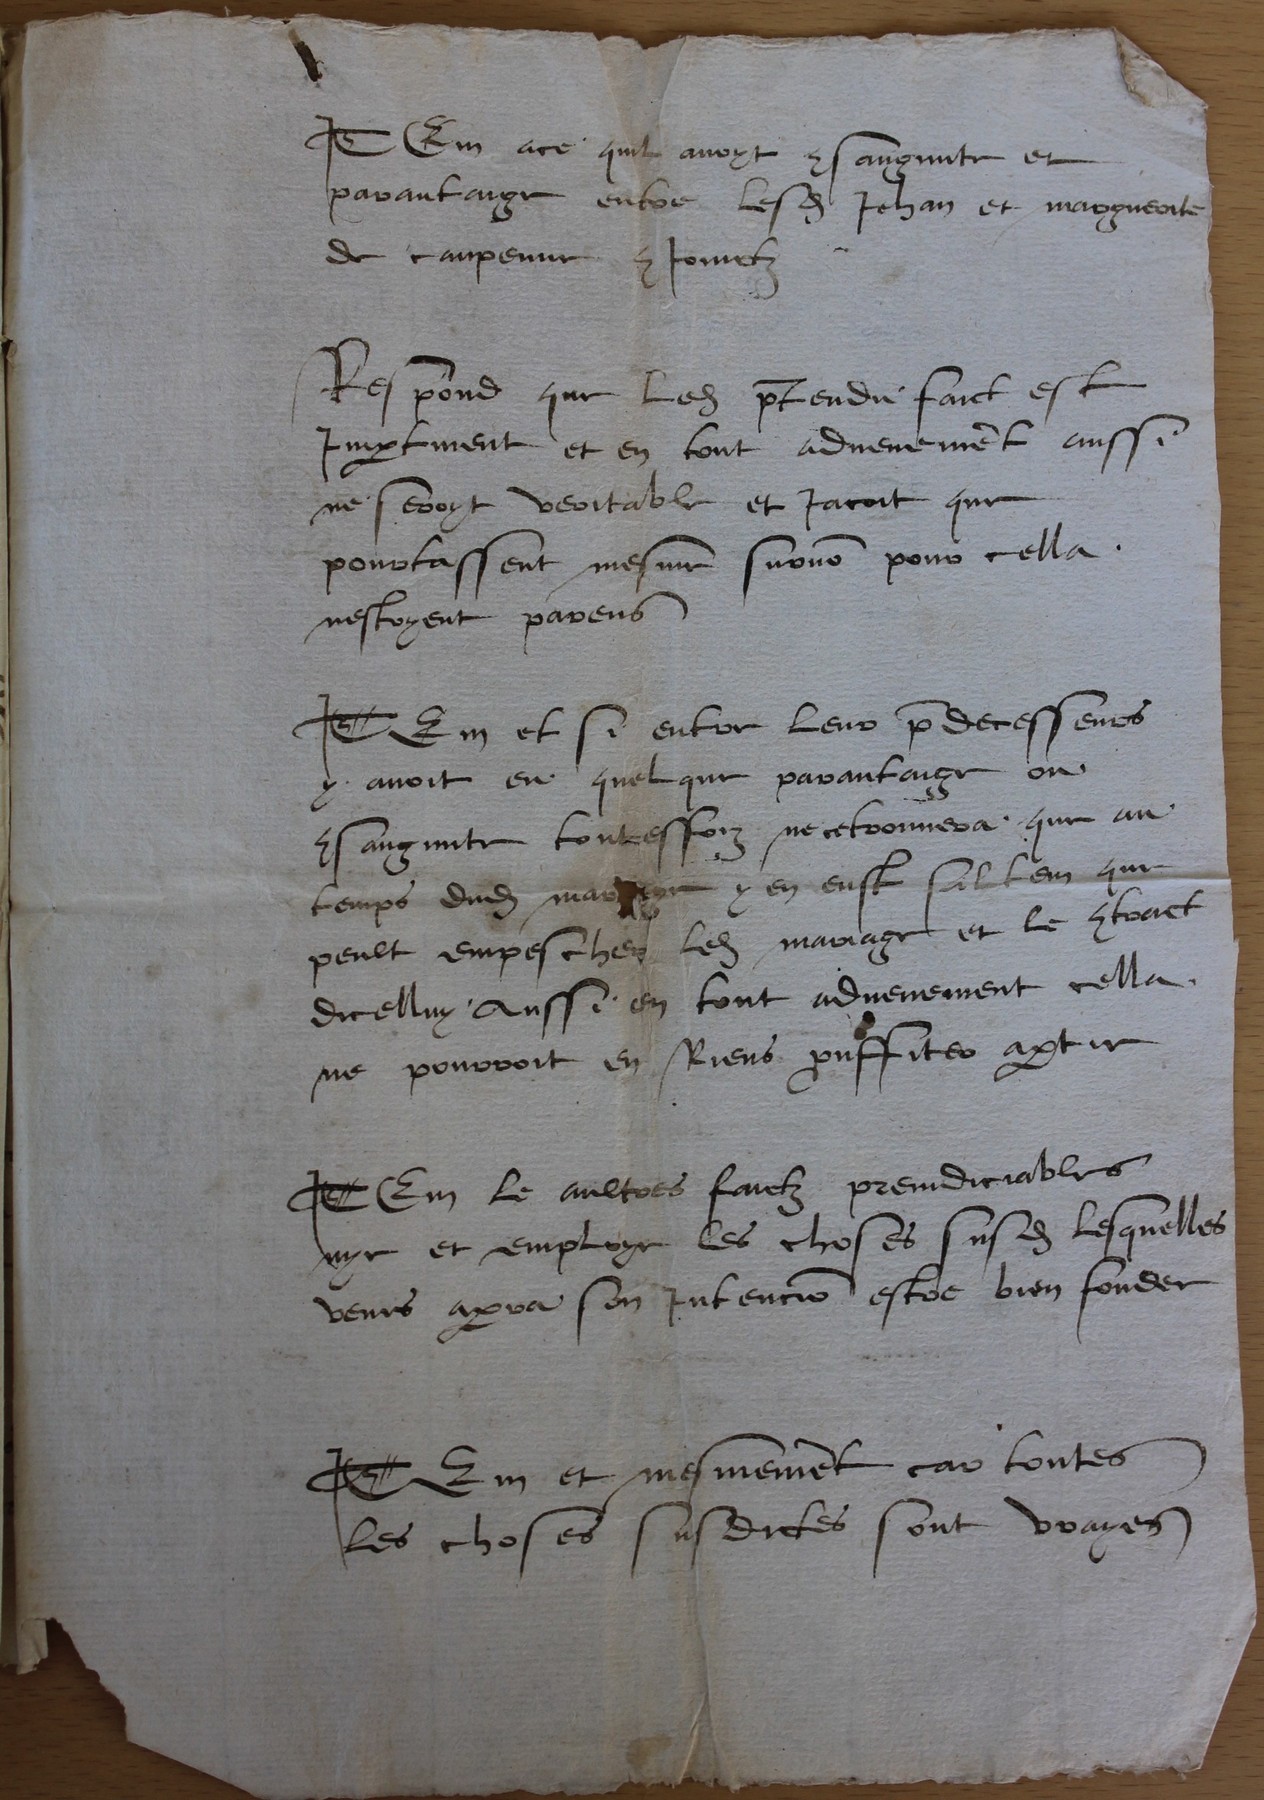 ITEm ace quil avoyt 9sanguinite et
parantaige entre lesd Jehan et marguerite
de caupenne 9joinctz
Respond que led ptendu faict est
Impertinent et en tout advenemet aussi
ne seroyt veritable et Jacoit que
pourtassent mesme surno pour cella
nestoyent parens
ITEm et si entre leur pdecesseurs
y avoit eu quelque parantaige ou
9sanguinite toutesfoiz ne ce trouvera que au
temps dud mariage y en eust saltem que
peult empescher led mariage et le 9tract
dicelluy Aussi en tout advenement cella
ne pourroit en Riens prouffiter apartir
ITEm le aultres faictz preiudiciables
nye et employe les choses susd lesquelles
veues apera son Intencio estre bien fonder
ITEm et mesmemet car toutes
les choses susdictes sont vrayes